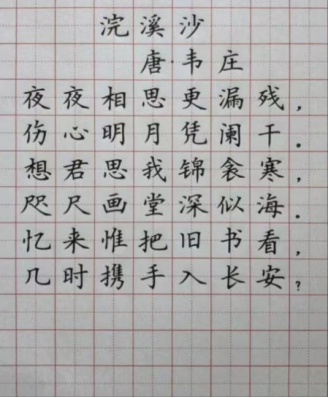 浣溪沙
唐·韦庄
夜夜相思更漏残，
伤心明月凭阑干。
想君思我锦衾寒，
咫尺画堂深似海。
忆来惟把旧书看，
几时携手入长安？